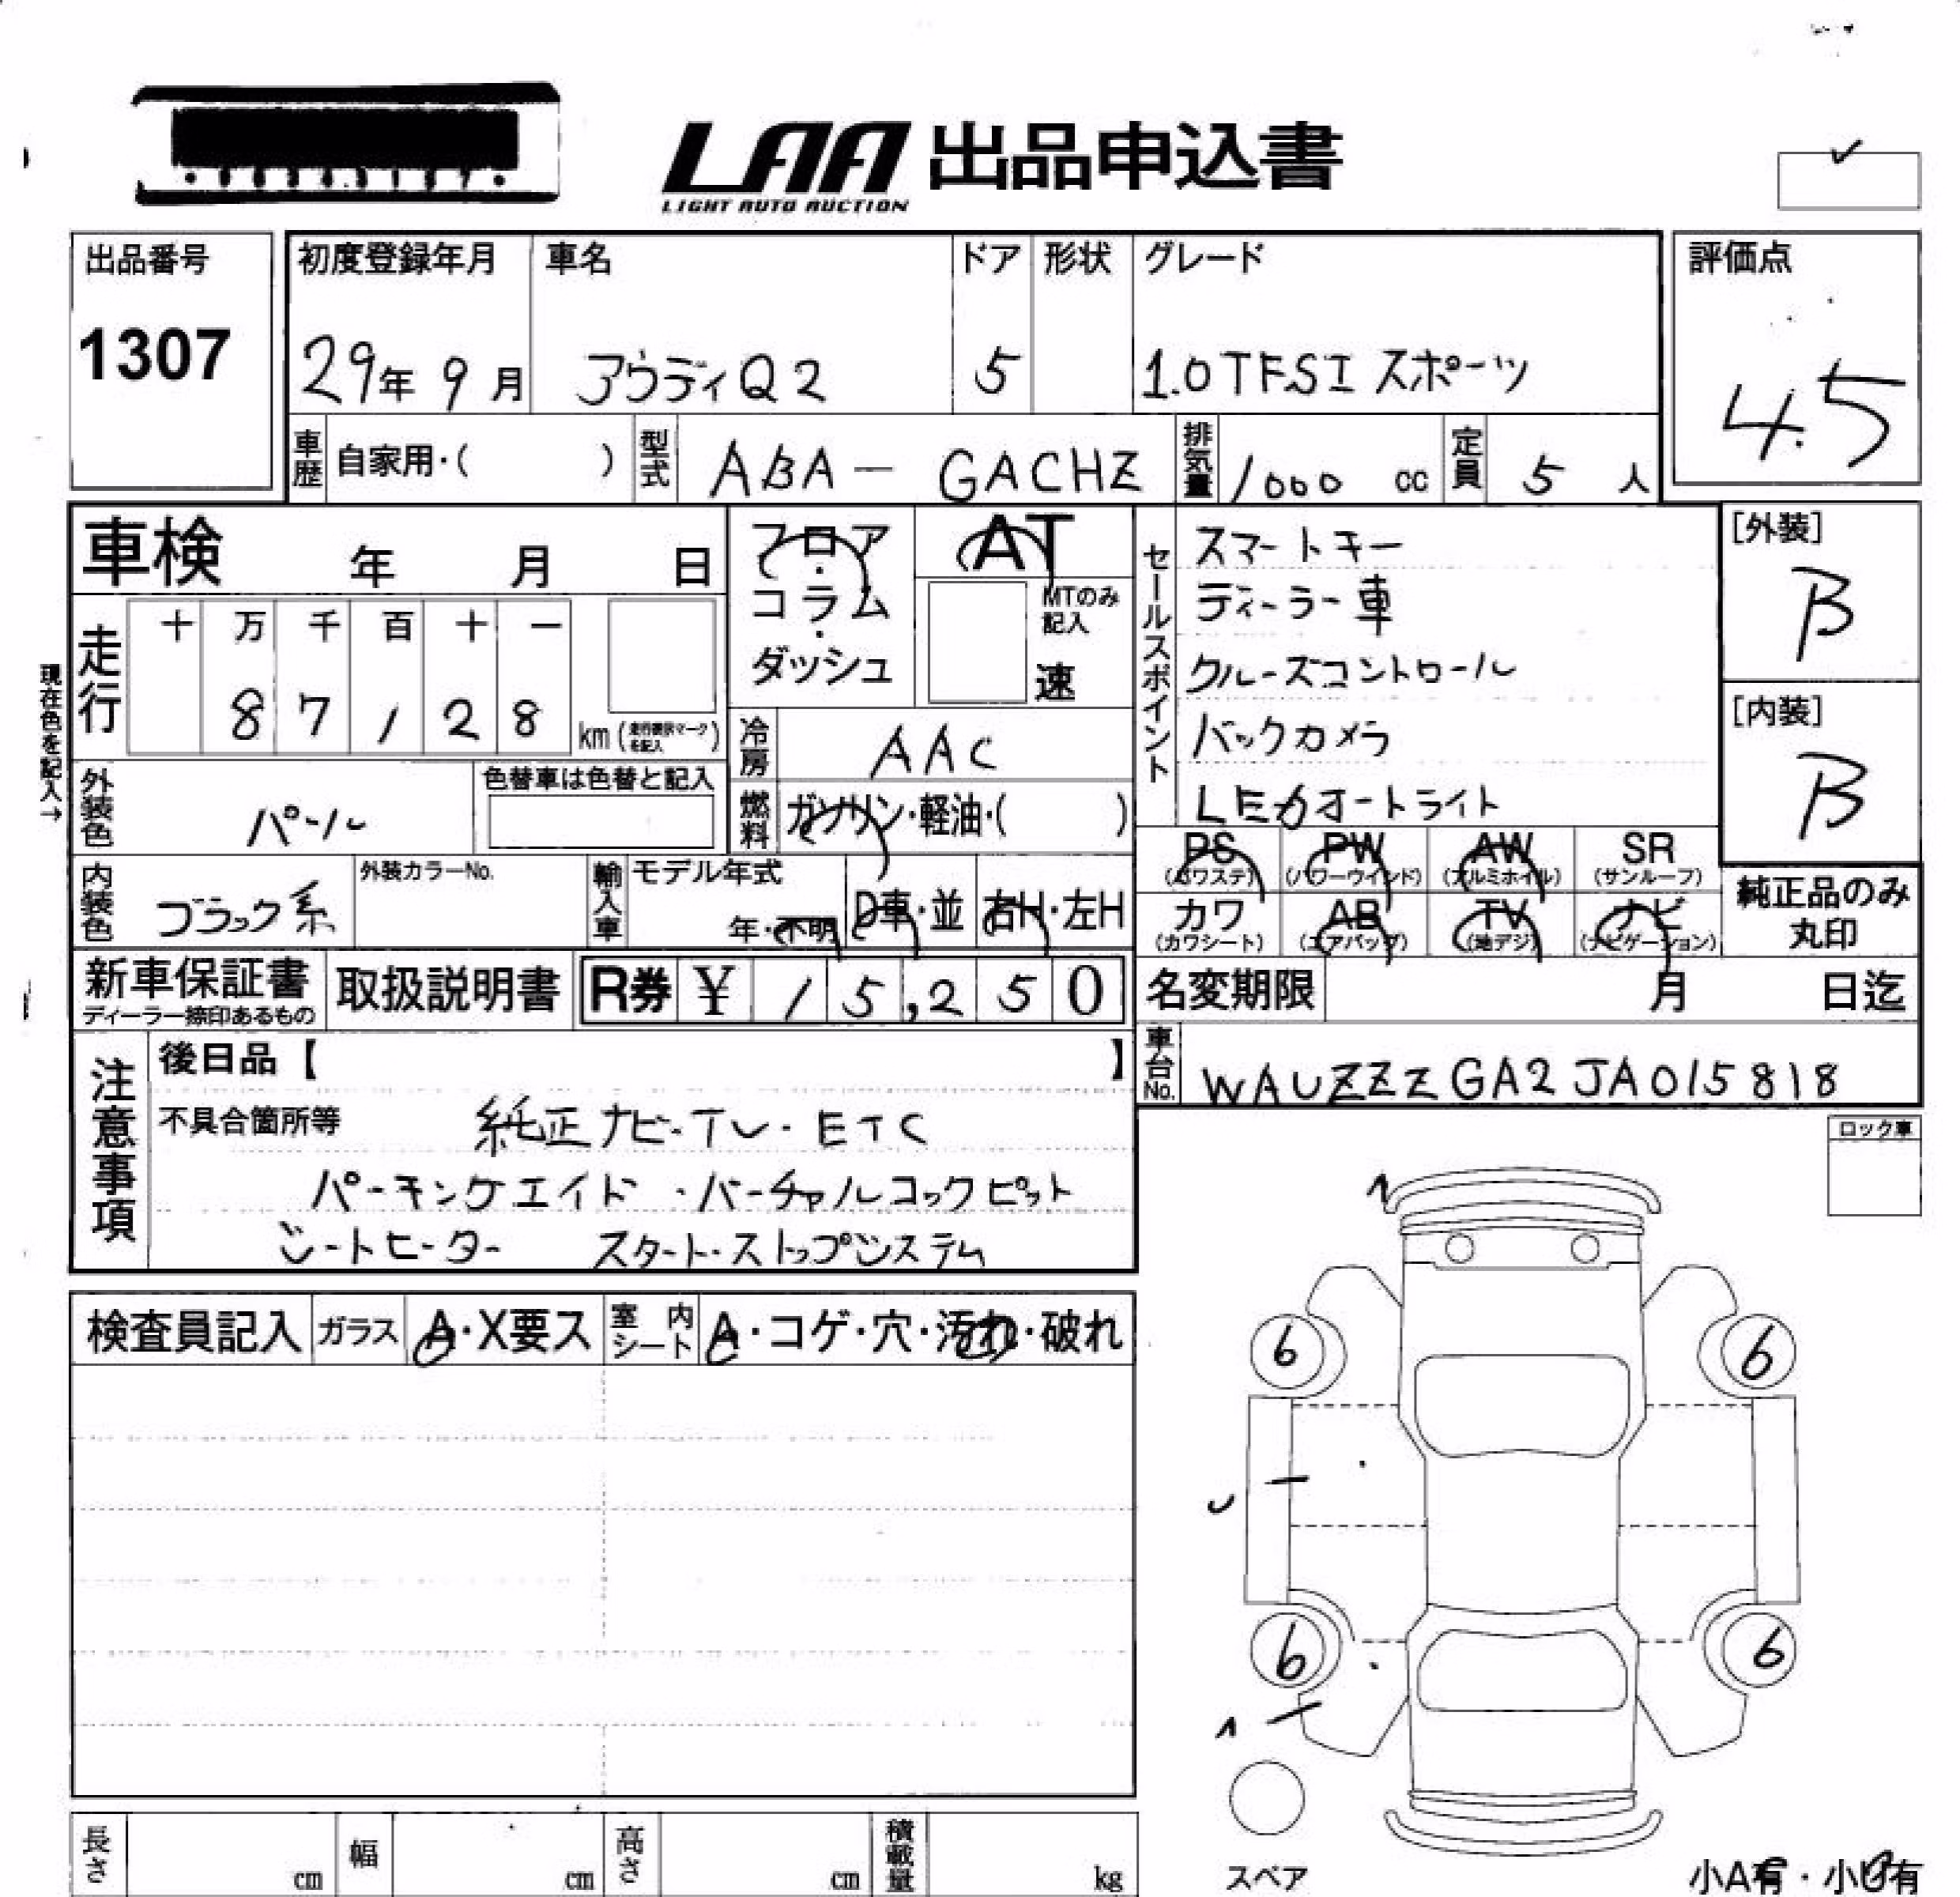 LAA 出品申込書
LIGHT AUTO AUCTION
出品番号
1307
初度登録年月
29年 9月
車名
アウディQ2
ドア
5
形状
グレード
1.0TFSI スポーツ
評価点
4.5
車歴 自家用・( )
型式 ABA－GACHZ
排気量 1000 cc
定員 5 人
車検 年 月 日
走行 十 万 千 百 十 一
8 7 1 2 8 km
現在色を記入→
外装色 パール
色替車は色替と記入
内装色 ブラック系
外装カラーNo.
フロア・コラム・ダッシュ
AT
MTのみ記入
速
冷房 AAC
燃料 ガソリン・軽油・( )
輸入車 モデル年式
年・不明
D車・並
右H・左H
セールスポイント
スマートキー
ディーラー車
クルーズコントロール
バックカメラ
LEDオートライト
[外装]
B
[内装]
B
PS (パワステ)
PW (パワーウインド)
AW (アルミホイル)
SR (サンルーフ)
カワ (カワシート)
AB (エアバッグ)
TV (地デジ)
ナビ (ナビゲーション)
純正品のみ
丸印
新車保証書
ディーラー捺印あるもの
取扱説明書
R券 ¥ 15,250
名変期限 月 日迄
車台No. WAUZZZGA2JA015818
注意事項
後日品【 】
不具合箇所等 純正ナビ・TV・ETC
パーキングエイド・バーチャルコックピット
シートヒーター スタート・ストップシステム
ロック車
検査員記入
ガラス A・X要ス
室内シート A・コゲ・穴・汚れ・破れ
6
6
6
6
スペア
長さ cm
幅 cm
高さ cm
積載量 kg
小A有・小U有